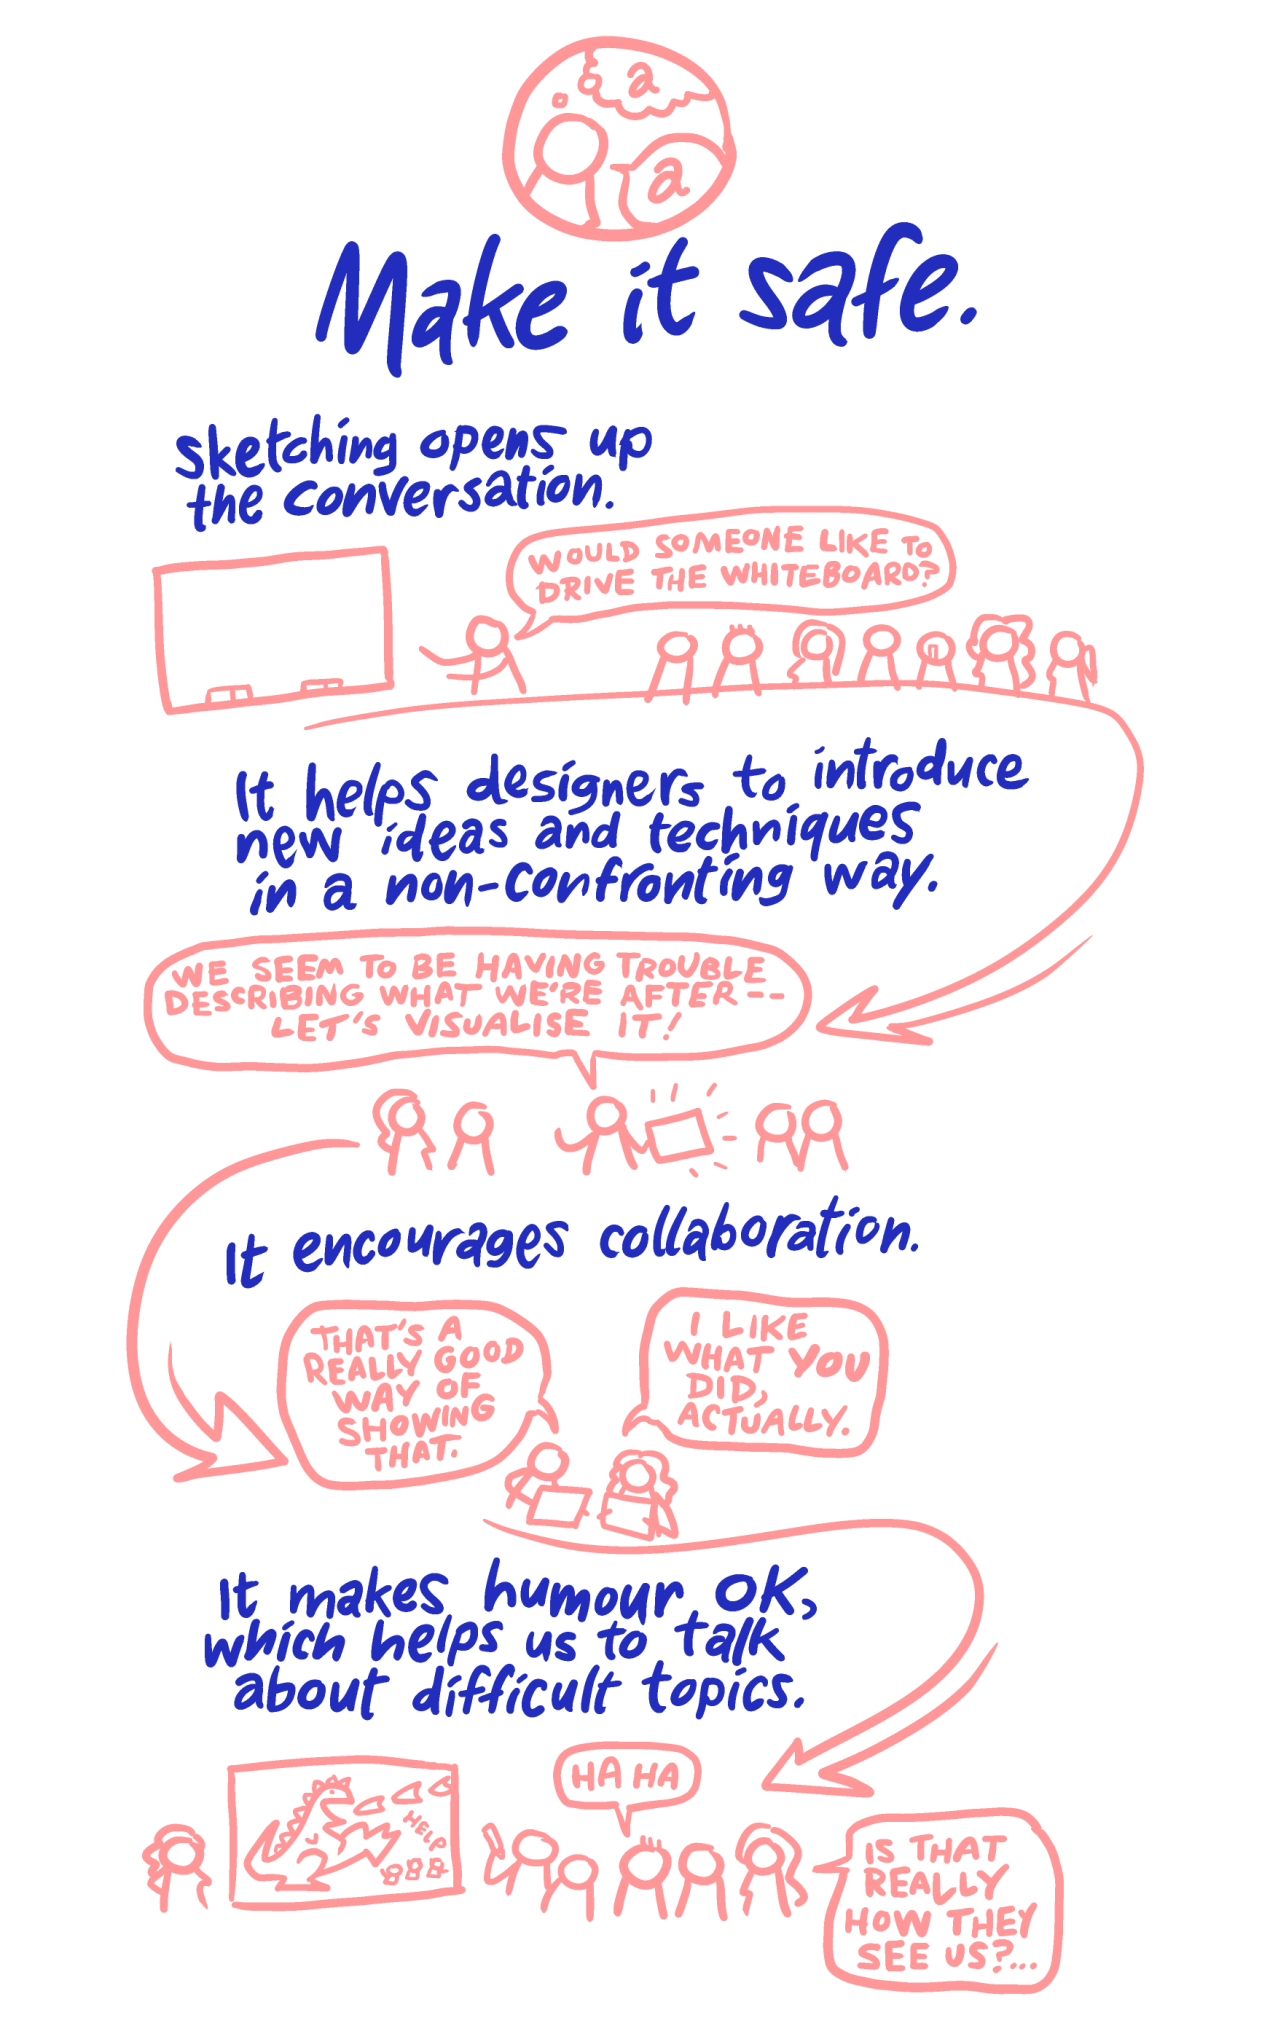 a
a
Make it safe.
Sketching opens up
the conversation.
WOULD SOMEONE LIKE TO
DRIVE THE WHITEBOARD?
It helps designers to introduce
new ideas and techniques
in a non-confronting way.
WE SEEM TO BE HAVING TROUBLE
DESCRIBING WHAT WE'RE AFTER--
LET'S VISUALISE IT!
It encourages collaboration.
THAT'S A
REALLY GOOD
WAY OF
SHOWING
THAT.
I LIKE
WHAT YOU
DID,
ACTUALLY.
It makes humour OK,
which helps us to talk
about difficult topics.
HELP
HA HA
IS THAT
REALLY
HOW THEY
SEE US?...